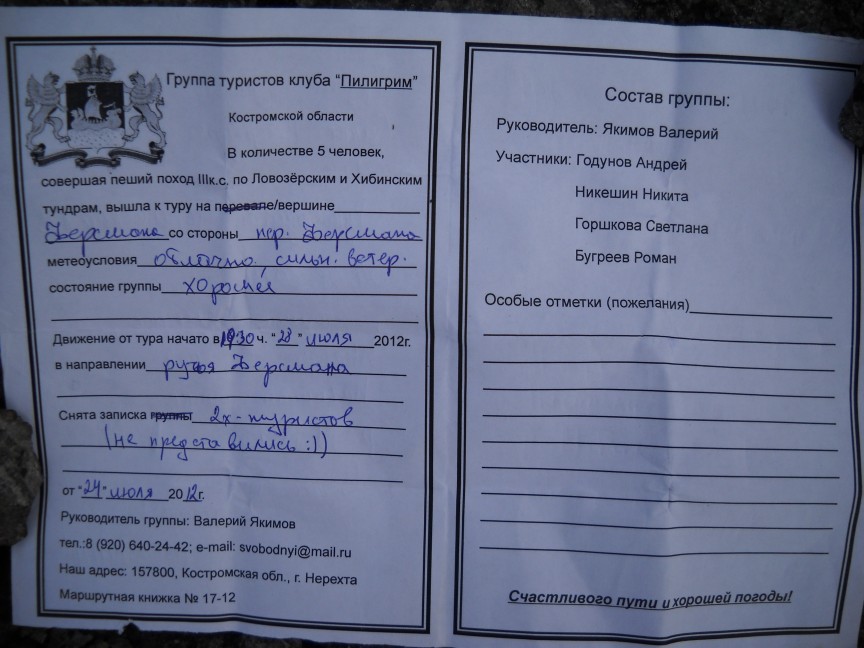 Группа туристов клуба "Пилигрим"
Костромской области
В количестве 5 человек,
совершая пеший поход IIIк.с. по Ловозёрским и Хибинским
тундрам, вышла к туру на перевале/вершине
Ферсмана со стороны пер. Ферсмана
метеоусловия облачно, сильн. ветер.
состояние группы хорошее
Движение от тура начато в 1930 ч. "28" июля 2012г.
в направлении ручья Ферсмана
Снята записка группы 2х-туристов
(не представились :))
от "24" июля 2012г.
Руководитель группы: Валерий Якимов
тел.:8 (920) 640-24-42; e-mail: svobodnyi@mail.ru
Наш адрес: 157800, Костромская обл., г. Нерехта
Маршрутная книжка № 17-12
Состав группы:
Руководитель: Якимов Валерий
Участники: Годунов Андрей
Никешин Никита
Горшкова Светлана
Бугреев Роман
Особые отметки (пожелания)
Счастливого пути и хорошей погоды!